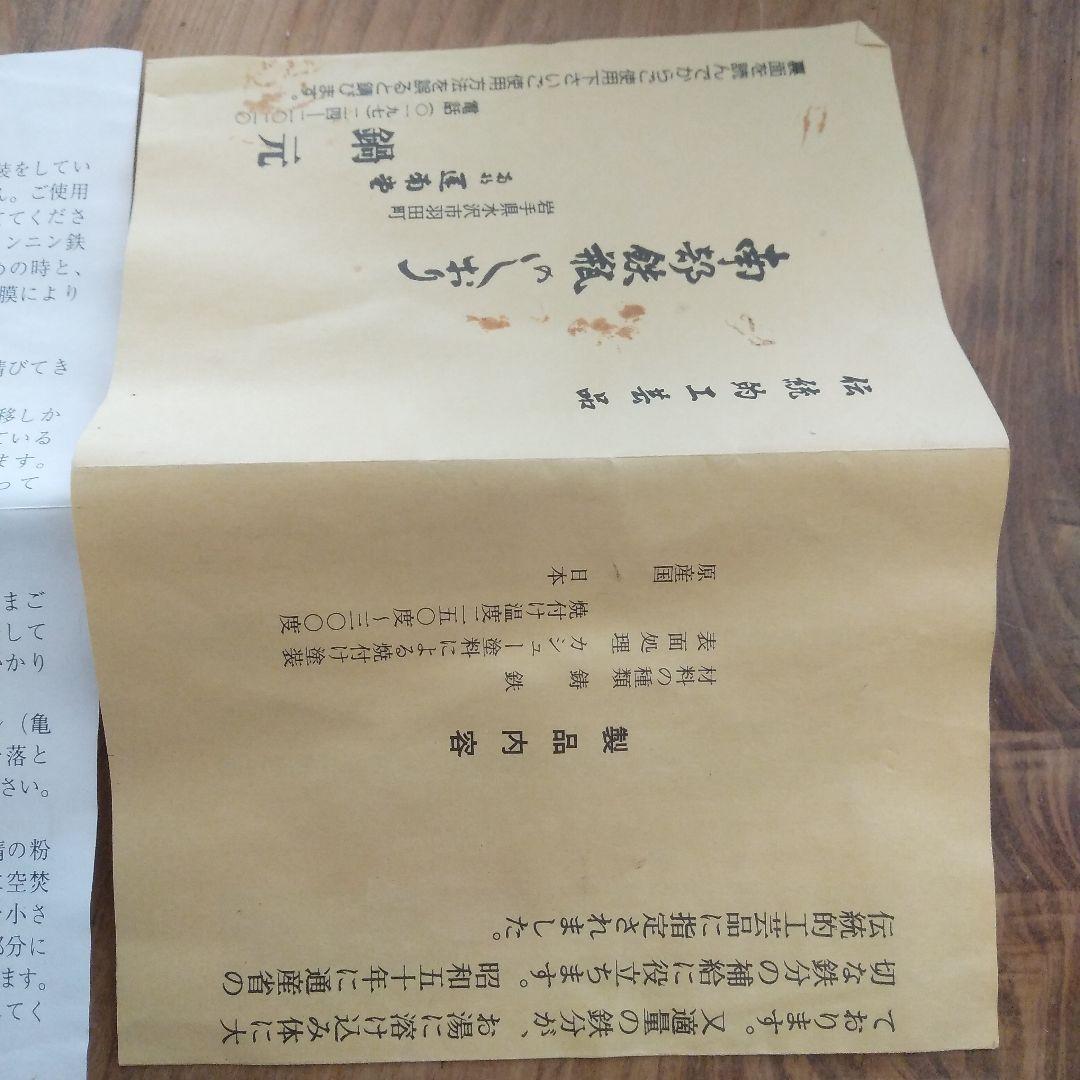 ております。又適量の鉄分が、お湯に溶け込み体に大
切な鉄分の補給に役立ちます。昭和五十年に通産省の
伝統的工芸品に指定されました。
製品内容
材料の種類 鋳鉄
表面処理 カシュー塗料による焼付け塗装
焼付け温度 二五〇度〜三〇〇度
原産国 日本
伝統的工芸品
南部鉄瓶のしおり
岩手県水沢市羽田町
鍋元
電話(〇一九七)
裏面を読んでからご使用下さい。ご使用方法を誤ると錆びます。
装をしてい
ん。ご使用
ててくださ
ンニン鉄
めの時と、
膜により
錆びてき
移しか
ている
ます。
って
まご
して
かかり
(亀
落と
さい。
錆の粉
に空焚
小さ
部分に
ます。
てく